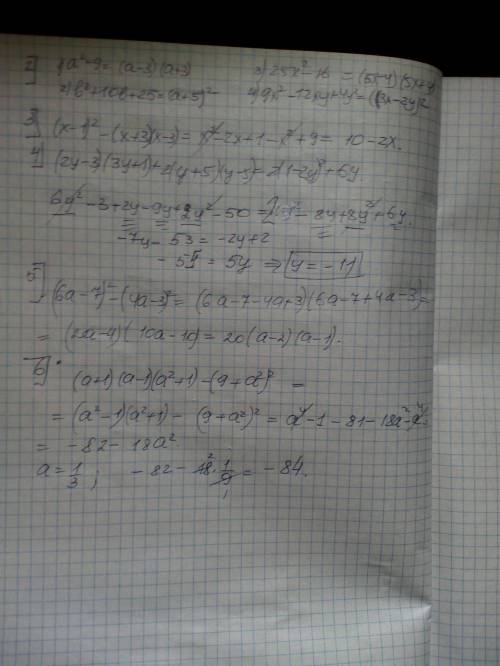 2] 1) a²-9=(a-3)(a+3) 3) 25x²-16 = (5x-4)(5x+4)
2) b²+10b+25=(a+5)² 4) 9x²-12xy+4y²=(3x-2y)²
3] (x-1)²-(x+3)(x-3)=x²-2x+1-x²+9= 10-2x.
4] (2y-3)(3y+1)+2(y+5)(y-5)=2(1-2y)²+6y
6y²-3+2y-9y+2y²-50=2-8y+8y²+6y.
-7y-53=-2y+2
-55=5y ⇒ y=-11
5] (6a-7)²-(4a-3)²=(6a-7-4a+3)(6a-7+4a-3)=
= (2a-4)(10a-10)=20(a-2)(a-1).
6] (a+1)(a-1)(a²+1)-(9+a²)² =
= (a²-1)(a²+1) - (9+a²)² = a⁴-1-81-18a²-a⁴=
= -82-18a².
a=1/3; -82-18²·1/9=-84.